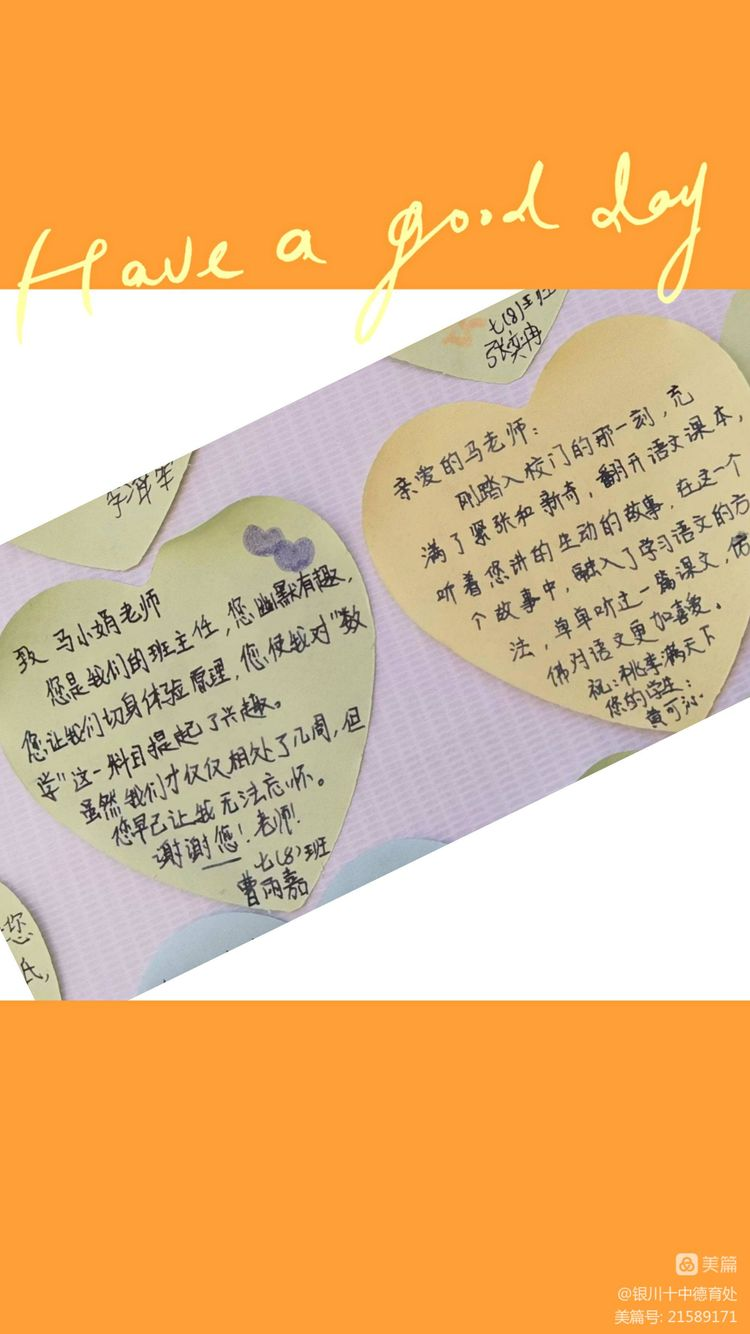 Have a good day
七(8)班
张奕冉
亲爱的马老师：
刚踏入校门的那一刻，充
满了紧张和新奇，翻开语文课本，
听着您讲的生动的故事，在这一个
个故事中，融入了学习语文的方
法，单单听这一篇课文，仿
佛对语文更加喜爱。
祝：桃李满天下
您的学生：
黄可
李泽军
致 马小娟老师
您是我们的班主任，您幽默有趣，
您让我们切身体验原理，您使我对“数
学”这一科目提起了兴趣。
虽然我们才仅仅相处了几周，但
您早已让我无法忘怀。
谢谢您！老师！
七(8)班
曹雨嘉
您
氏，
美篇
@银川十中德育处
美篇号: 21589171